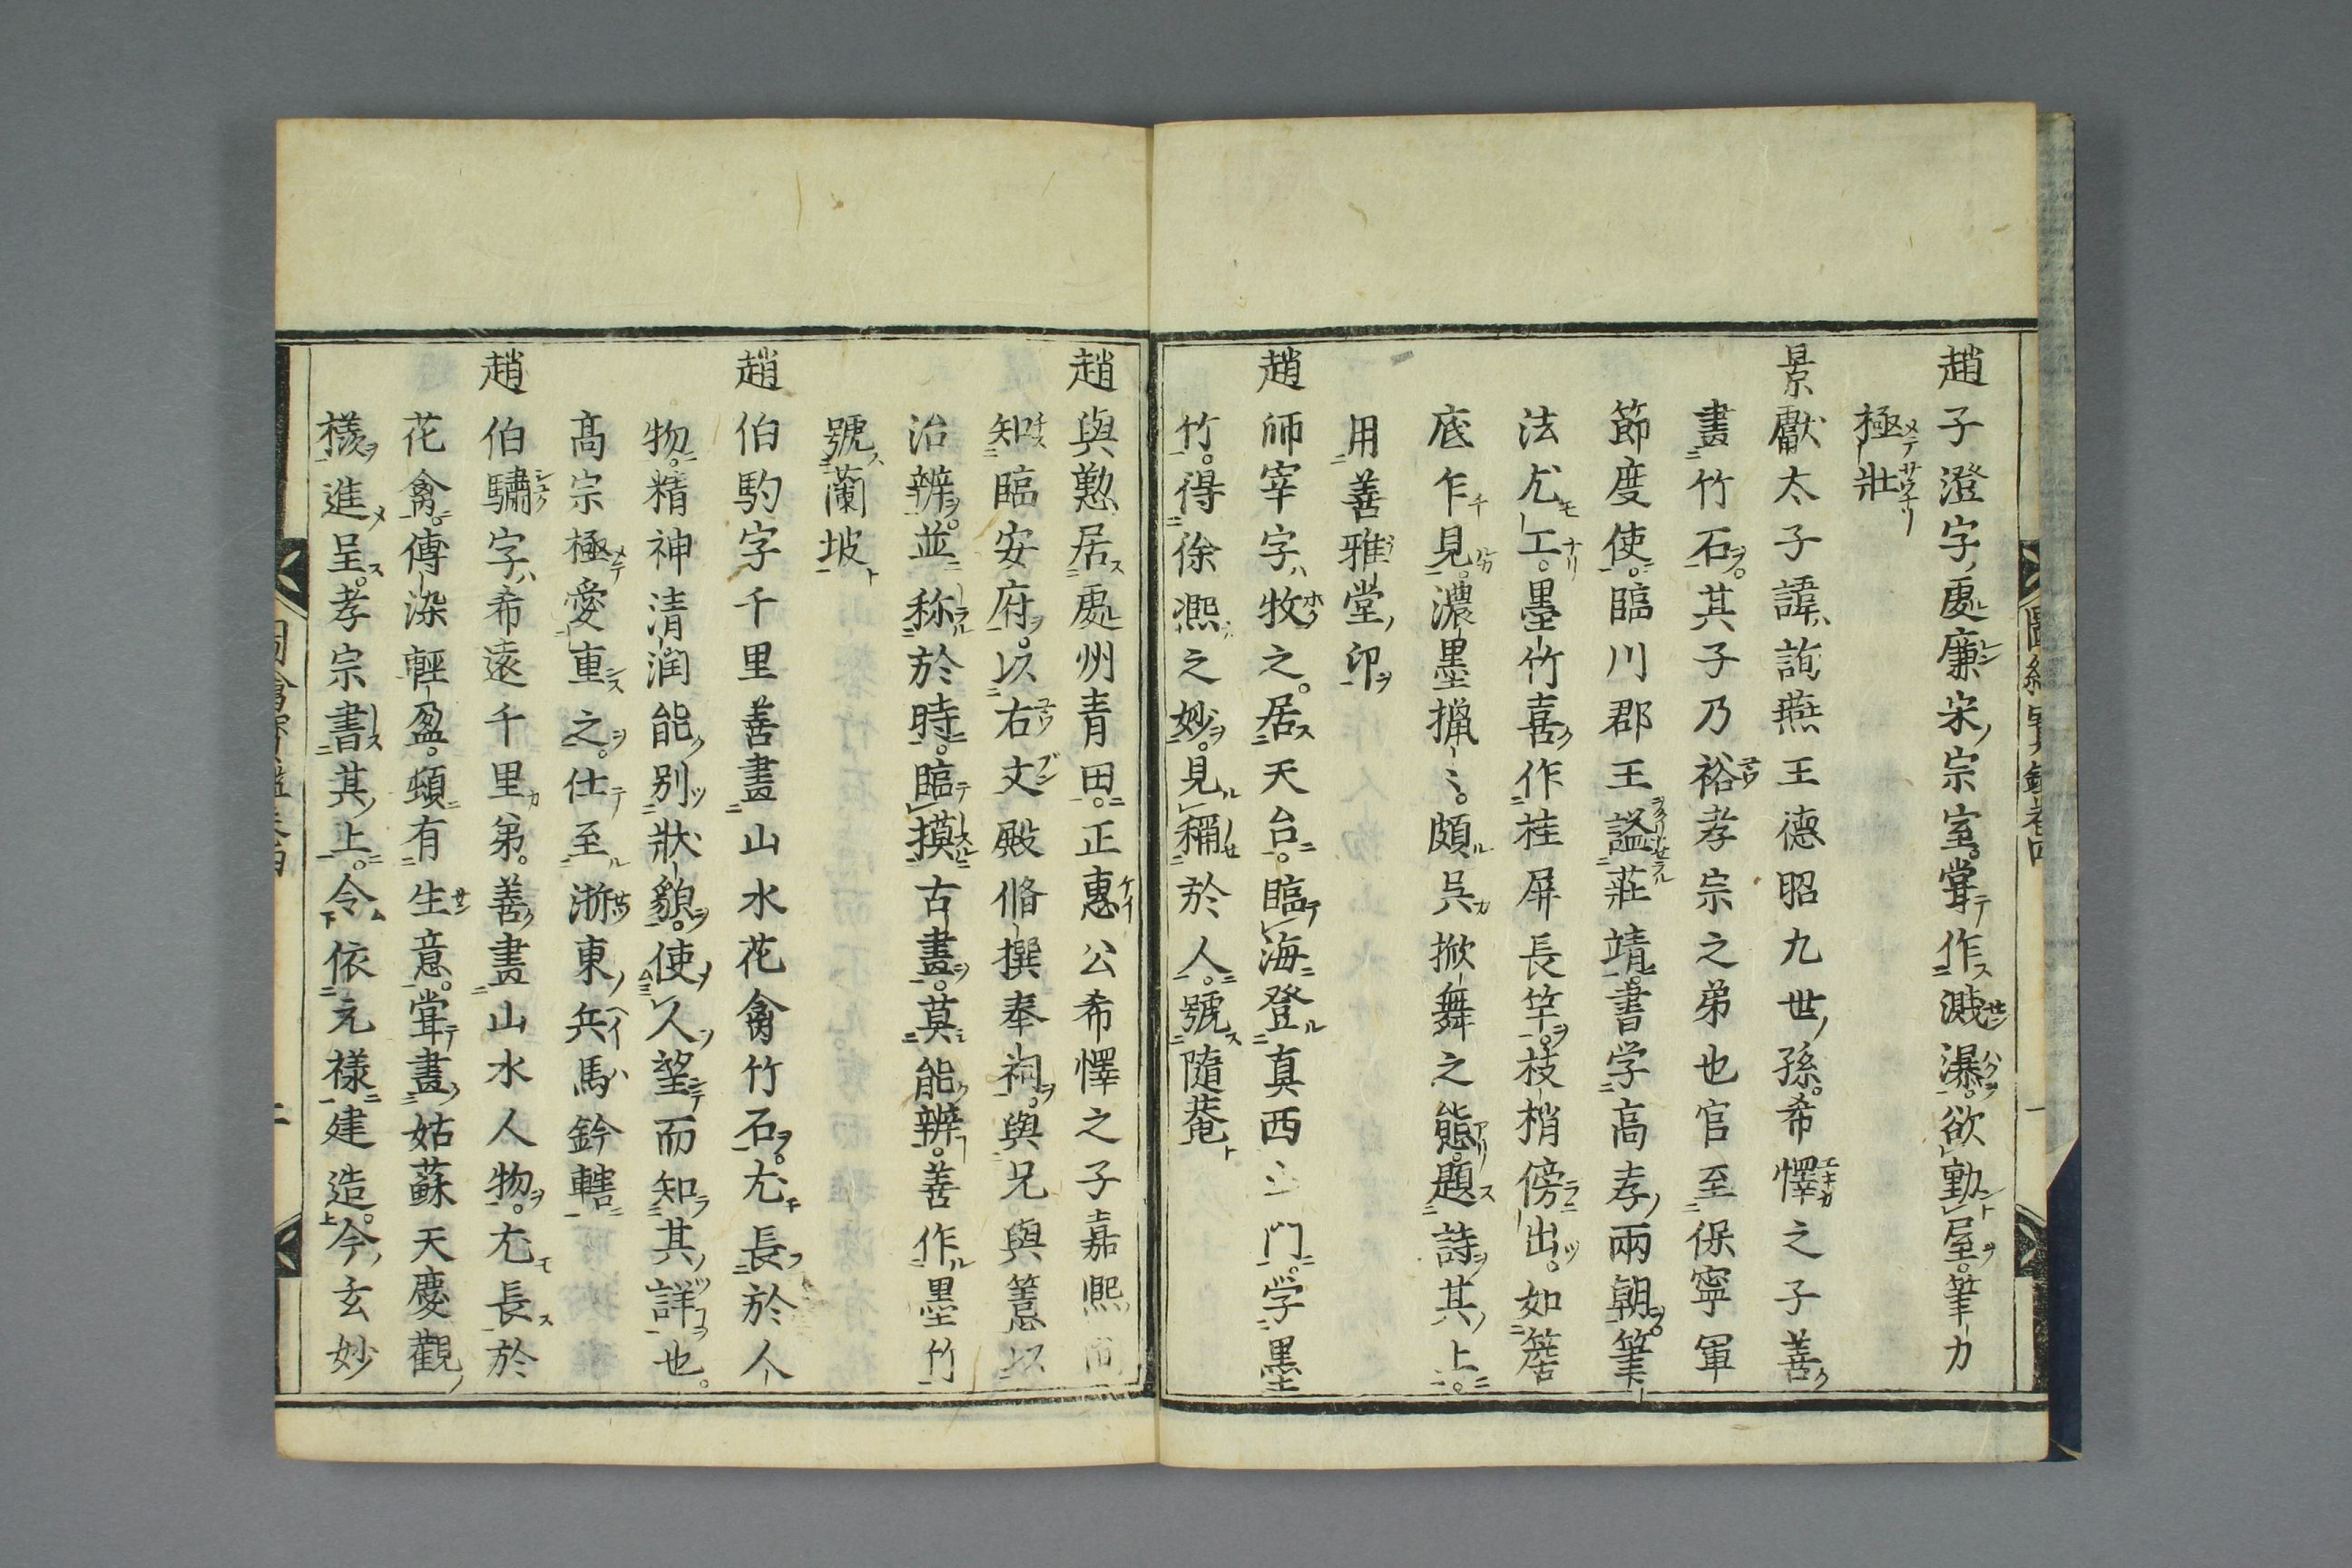 趙子澄字處廉宋宗室。嘗作濺瀑。欲動屋。筆力
極壯
景獻太子諱詢燕王德昭九世孫。希懌之子善
畫竹石。其子乃裕孝宗之弟也官至保寧軍
節度使。臨川郡王謚莊靖。書学高孝兩朝。筆
法尤工。墨竹喜作桂屏長竿。枝梢傍出。如簷
底乍見。濃墨獵〻。頗呉掀舞之態。題詩其上。
用善雅堂印
趙師宰字牧之。居天台。臨海登真西〻門。学墨
竹。得徐熙之妙。見稱於人。號隨菴
趙與懃居處州青田。正惠公希懌之子嘉熙
知臨安府。以右文殿脩撰奉祠。與兄與𥲅以
治辨。並称於時。臨摸古畫。莫能辨。善作墨竹
號蘭坡
趙伯駒字千里善畫山水花禽竹石。尤長於人
物。精神清潤能别狀貌。使人望而知其詳也。
髙宗極愛重之。仕至浙東兵馬鈐轄
趙伯驌字希遠千里弟。善畫山水人物。尤長於
花禽。傅染輕盈。頓有生意。嘗畫姑蘇天慶觀
樣進呈。孝宗書其上。令依元樣建造。今玄妙